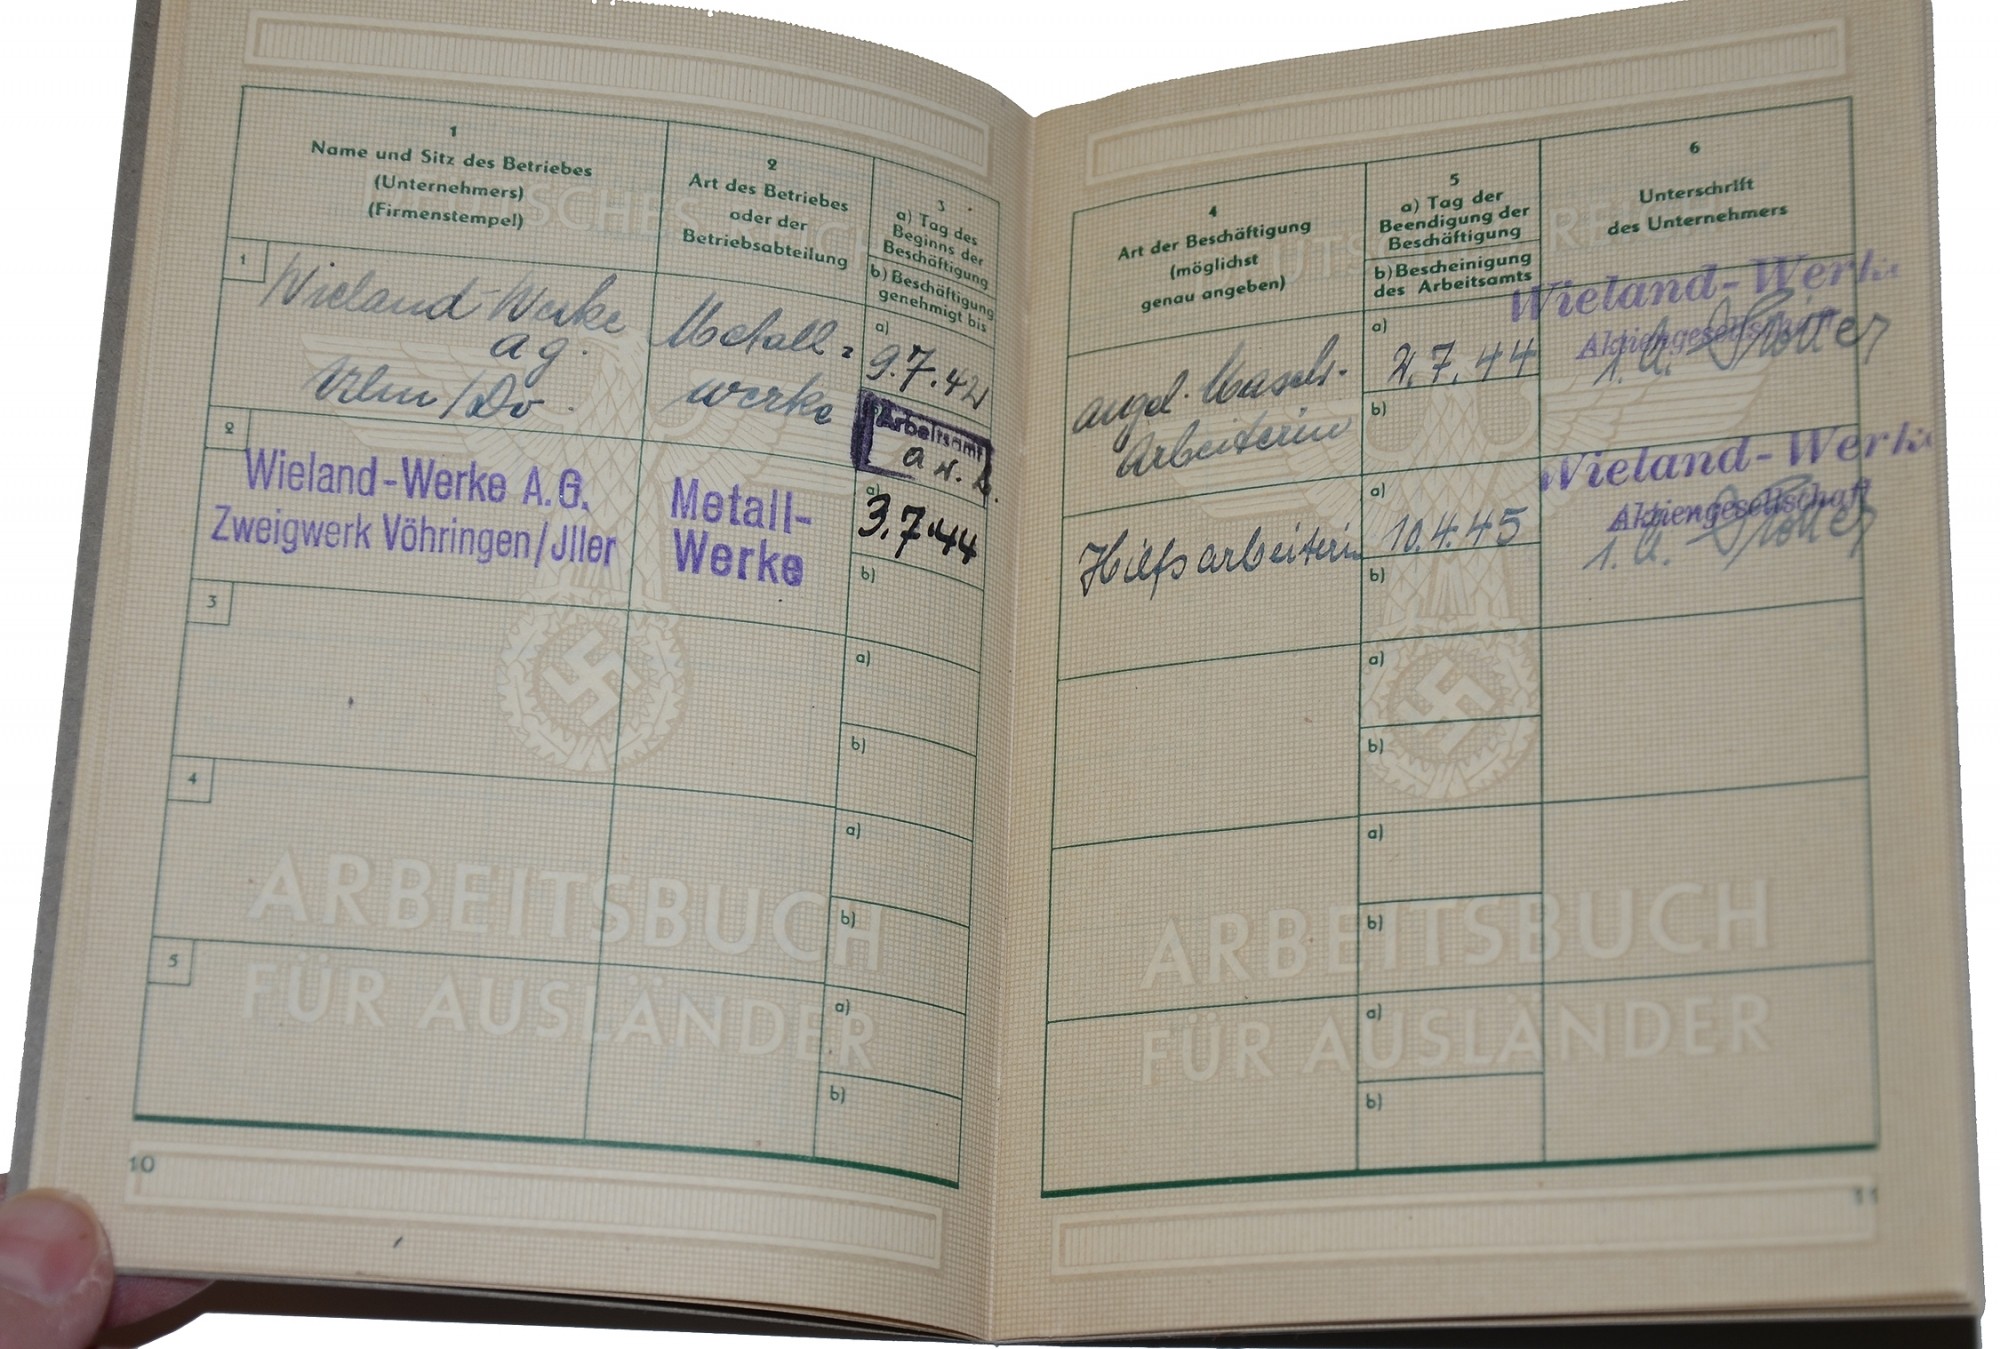 1
Name und Sitz des Betriebes
(Unternehmers)
(Firmenstempel)
2
Art des Betriebes
oder der
Betriebsabteilung
3
a) Tag des
Beginns der
Beschäftigung
b) Beschäftigung
genehmigt bis
1
Wieland-Werke
A G.
Ulm/Do.
Metall-
werke
a)
9.7.42
Arbeitsamt
2
Wieland-Werke A.G.
Zweigwerk Vöhringen/Jller
Metall-
Werke
a)
3.7.44
b)
3
a)
b)
4
a)
b)
5
a)
b)
DEUTSCHES REICH
ARBEITSBUCH
FÜR AUSLÄNDER
10
4
Art der Beschäftigung
(möglichst
genau angeben)
5
a) Tag der
Beendigung der
Beschäftigung
b) Bescheinigung
des Arbeitsamts
6
Unterschrift
des Unternehmers
angel. Masch.-
Arbeiterin
a)
2.7.44
b)
Wieland-Werke
Aktiengesellschaft
Hilfsarbeiterin
a)
10.4.45
b)
Wieland-Werke
Aktiengesellschaft
a)
b)
a)
b)
a)
b)
DEUTSCHES REICH
ARBEITSBUCH
FÜR AUSLÄNDER
11